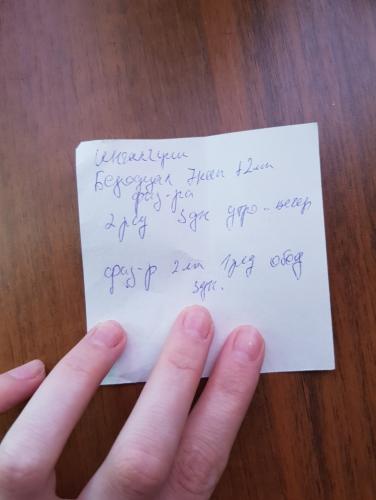 Ингаляции
Беродуал 7кап +2мл
физ-ра
2 р/д 3дн утро-вечер
физ-р 2мл 1р/д обед
3дн.